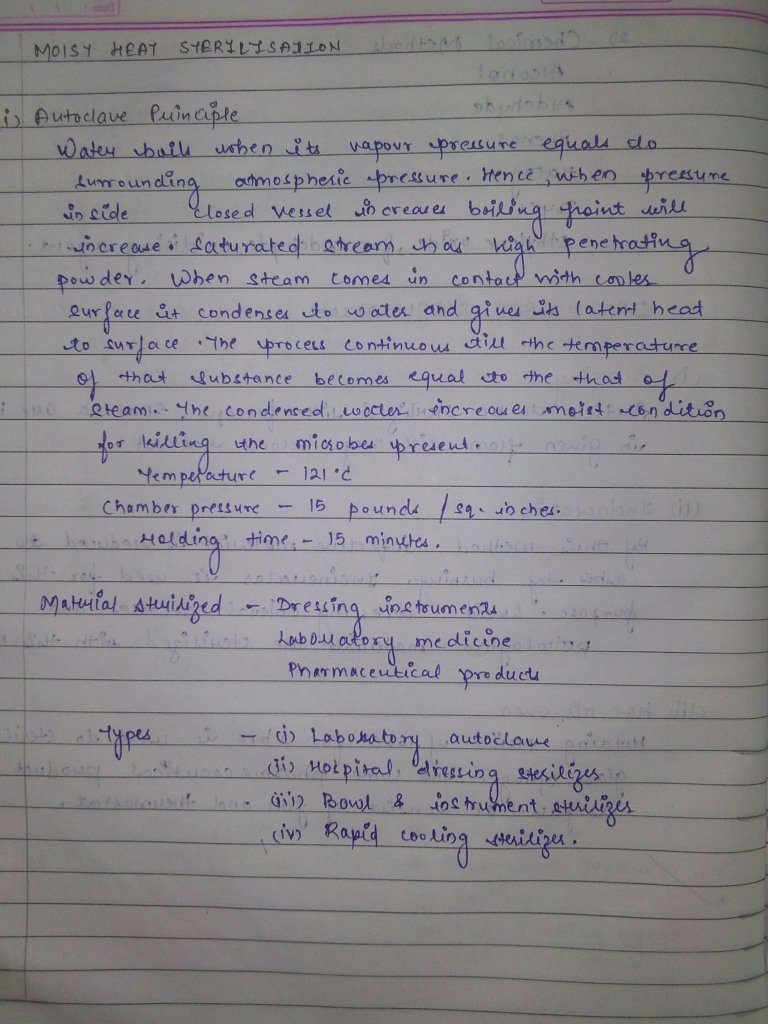 MOIST HEAT STERILISATION
i) Autoclave Principle
Water boils when its vapour pressure equals to
surrounding atmospheric pressure. Hence, when pressure
inside closed vessel increases boiling point will
increase. Saturated stream has high penetrating
powder. When steam comes in contact with cooler
surface it condenses to water and gives its latent heat
to surface. The process continuous till the temperature
of that substance becomes equal to the that of
steam. The condensed water increases moist condition
for killing the microbes present.
Temperature - 121°C
Chamber pressure - 15 pounds / sq. inches.
Holding time - 15 minutes.
Material sterilized - Dressing instruments
Laboratory medicine
Pharmaceutical products
Types - (i) Laboratory autoclave
(ii) Hospital dressing sterilizer
(iii) Bowl & instrument sterilizer
(iv) Rapid cooling sterilizer.